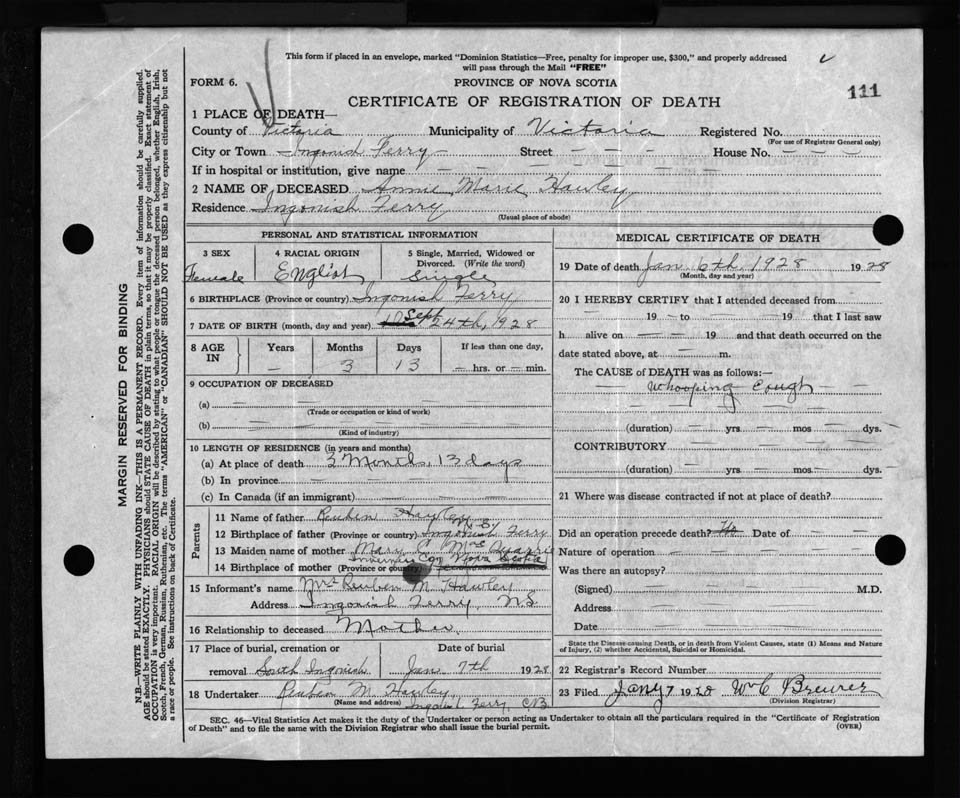 This form if placed in an envelope, marked "Dominion Statistics—Free, penalty for improper use, $300," and properly addressed
will pass through the Mail "FREE"
FORM 6.
PROVINCE OF NOVA SCOTIA
111
CERTIFICATE OF REGISTRATION OF DEATH
1 PLACE OF DEATH—
County of Victoria Municipality of Victoria Registered No.
(For use of Registrar General only)
City or Town Ingonish Ferry Street — — — House No. — — —
If in hospital or institution, give name — — — — — — —
2 NAME OF DECEASED Annie Marie Hawley
Residence Ingonish Ferry
(Usual place of abode)
PERSONAL AND STATISTICAL INFORMATION
3 SEX 4 RACIAL ORIGIN 5 Single, Married, Widowed or
Divorced. (Write the word)
Female English Single
6 BIRTHPLACE (Province or country) Ingonish Ferry
7 DATE OF BIRTH (month, day and year) Sept 24th, 1928
8 AGE IN Years Months Days If less than one day,
— 3 13 — hrs. or — min.
9 OCCUPATION OF DECEASED
(a) — — — — —
(Trade or occupation or kind of work)
(b) — — — — —
(Kind of industry)
10 LENGTH OF RESIDENCE (in years and months)
(a) At place of death 3 Months, 13 days
(b) In province — — — — —
(c) In Canada (if an immigrant) — — — —
Parents
11 Name of father Reuben Hawley
12 Birthplace of father (Province or country) Ingonish Ferry
13 Maiden name of mother Mary
14 Birthplace of mother (Province or country) Inverness Co. Nova Scotia
15 Informant's name Mrs Reuben M. Hawley
Address Ingonish Ferry, N.S.
16 Relationship to deceased Mother
17 Place of burial, cremation or Date of burial
removal South Ingonish Jan. 7th 1928
18 Undertaker Reuben M. Hawley
(Name and address) Ingonish Ferry, C.B.
MEDICAL CERTIFICATE OF DEATH
19 Date of death Jan 6th, 1928 1928
(Month, day and year)
20 I HEREBY CERTIFY that I attended deceased from
— 19 — to — — 19 that I last saw
h alive on — — — 19 and that death occurred on the
date stated above, at — m.
The CAUSE of DEATH was as follows:—
— Whooping Cough —
— — — — — — —
(duration) — yrs — mos — dys.
CONTRIBUTORY — — — — —
(duration) — yrs — mos — dys.
21 Where was disease contracted if not at place of death?
Did an operation precede death? No Date of —
Nature of operation — — — — —
Was there an autopsy? — — — —
(Signed) — — — M.D.
Address — — — —
Date — — — —
State the Disease-causing Death, or in death from Violent Causes, state (1) Means and Nature
of Injury, (2) whether Accidental, Suicidal or Homicidal.
22 Registrar's Record Number
23 Filed Jany 7 1928 Wm C Brewer
(Division Registrar)
SEC. 46—Vital Statistics Act makes it the duty of the Undertaker or person acting as Undertaker to obtain all the particulars required in the "Certificate of Registration
of Death" and to file the same with the Division Registrar who shall issue the burial permit. (OVER)
MARGIN RESERVED FOR BINDING
N.B.—WRITE PLAINLY WITH UNFADING INK—THIS IS A PERMANENT RECORD. Every item of information should be carefully supplied.
AGE should be stated EXACTLY. PHYSICIANS should STATE CAUSE OF DEATH in plain terms, so that it may be properly classified. Exact statement of
OCCUPATION is very important. RACIAL ORIGIN will be described by stating to what people or tongue the deceased person belonged, whether English, Irish,
Scotch, French, German, Russian, Ruthenian, etc. The terms "AMERICAN" or "CANADIAN" SHOULD NOT BE USED as they express citizenship but not
a race or people. See instructions on back of Certificate.